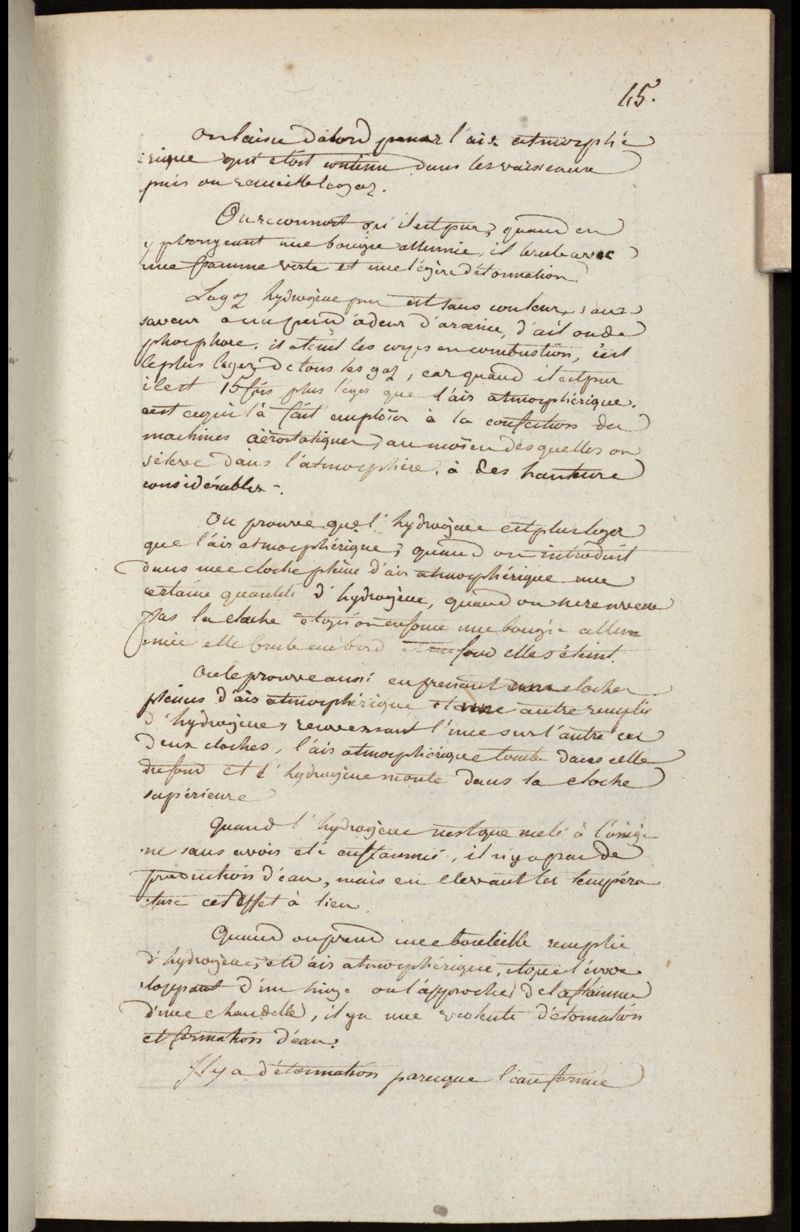 45.
On laisse d'abord passer l'air atmosphé
rique qui étoit contenu dans les vaisseaux
puis on recueille le gaz.
On reconnoit qu'il est pur, quand en
y plongeant une bougie allumée, il brule avec
une flamme verte et une légère détonnation
Le gaz hydrogène pur est sans couleur, sans
saveur a un peu d'odeur d'arsenic, d'ail ou de
phosphore, il éteint les corps en combustion, c'est
le plus léger de tous les gaz, car quand il est pur
il est 15 fois plus léger que l'air atmosphérique,
c'est ce qui l'a fait emploïer à la confection des
machines aërostatiques, au moïen desquelles on
s'éleve dans l'atmosphère, à des hauteurs
considérables.
On prouve que l'hydrogène est plus léger
que l'air atmosphérique, quand on introduit
dans une cloche pleine d'air atmosphérique une
certaine quantité d'hydrogène, quand on ne renverse
pas la cloche et qu'on enfonce une bougie allum
mée elle brule au bord et au fond elle s'éteint.
On le prouve aussi en prenant une cloche
pleine d'air atmosphérique et une autre remplie
d'hydrogène, renversant l'une sur l'autre ces
deux cloches, l'air atmosphérique tombe dans celle
du fond et l'hydrogène monte dans la cloche
supérieure
Quand l'hydrogène n'est que melé à l'oxigè
ne sans avoir été enflammé, il n'y a pas de
production d'eau, mais en élevant la tempéra
ture cet effet à lieu.
Quand on prend une bouteille remplie
d'hydrogène, et d'air atmosphérique, et que l'enve
loppant d'un linge on l'approche de la flamme
d'une chandelle, il y a une violente détonation
et formation d'eau.
Il y a détonnation parceque l'eau formée